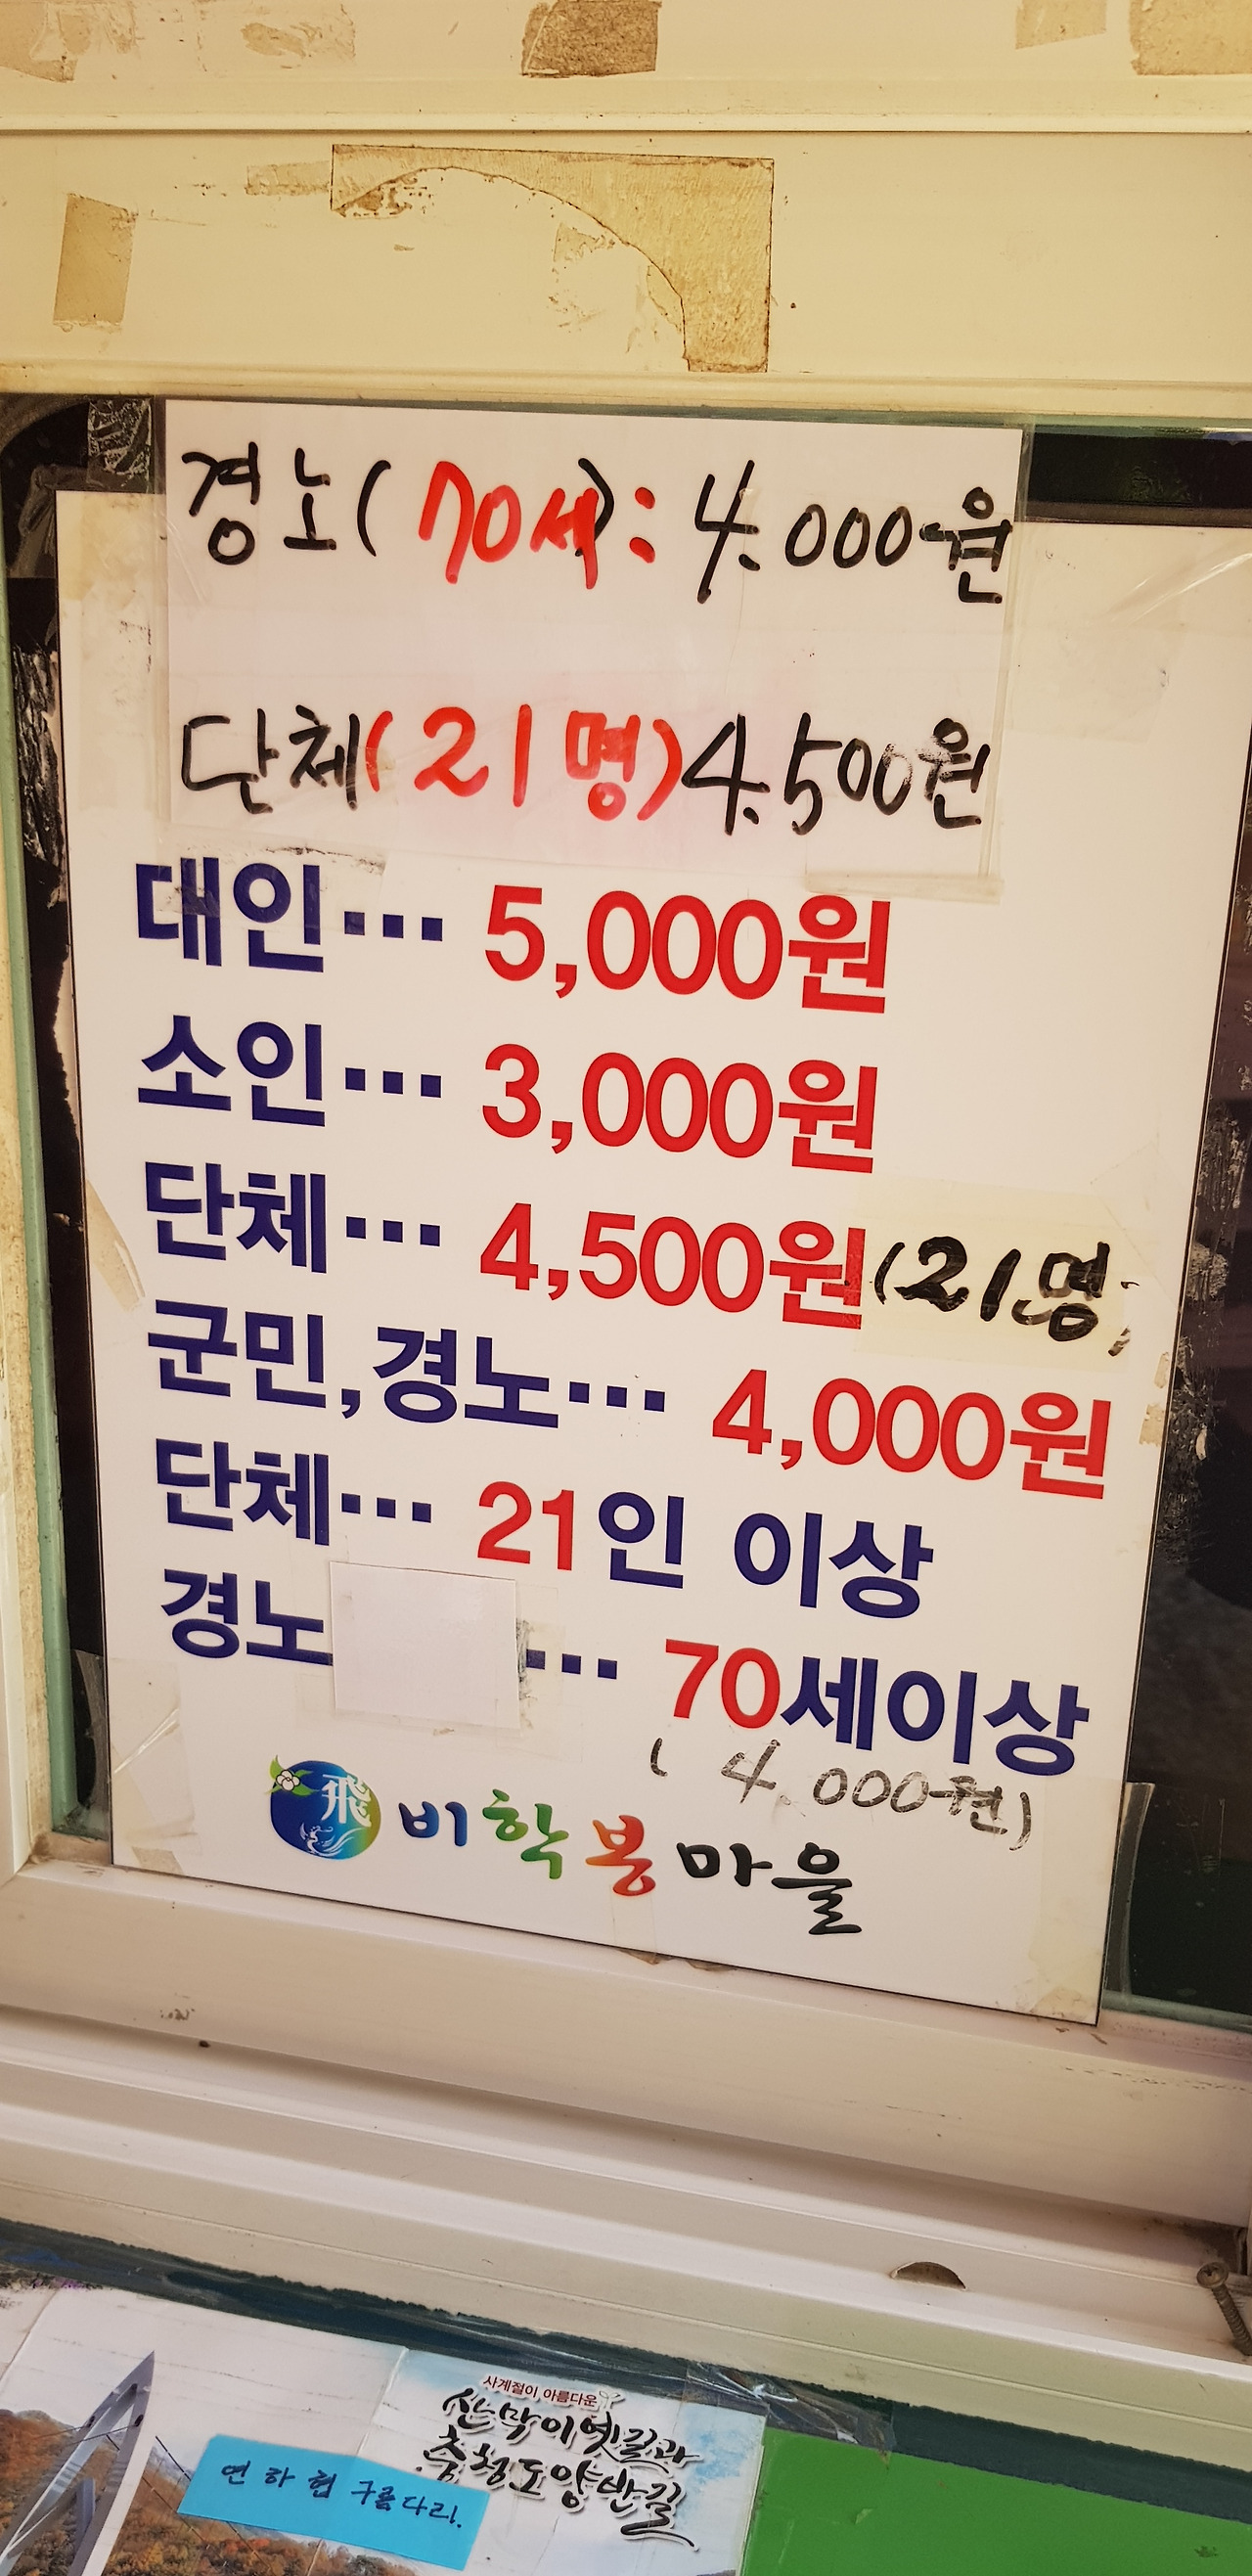 경노(70세): 4.000원
단체(21명)4.500원
대인··· 5,000원
소인··· 3,000원
단체··· 4,500원(21명)
군민,경노··· 4,000원
단체··· 21인 이상
경노 ··· 70세이상
( 4.000원)
飛 비학봉마을
사계절이 아름다운
산막이옛길과
충청도양반길
연하협 구름다리.